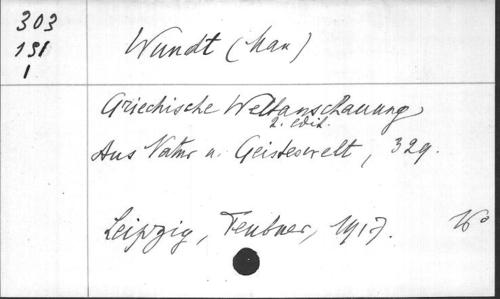 303
151
1
Wundt (Max)
Griechische Weltanschauung
2. edit.
Aus Natur u. Geisteswelt, 329.
Leipzig, Teubner, 1917. 16°